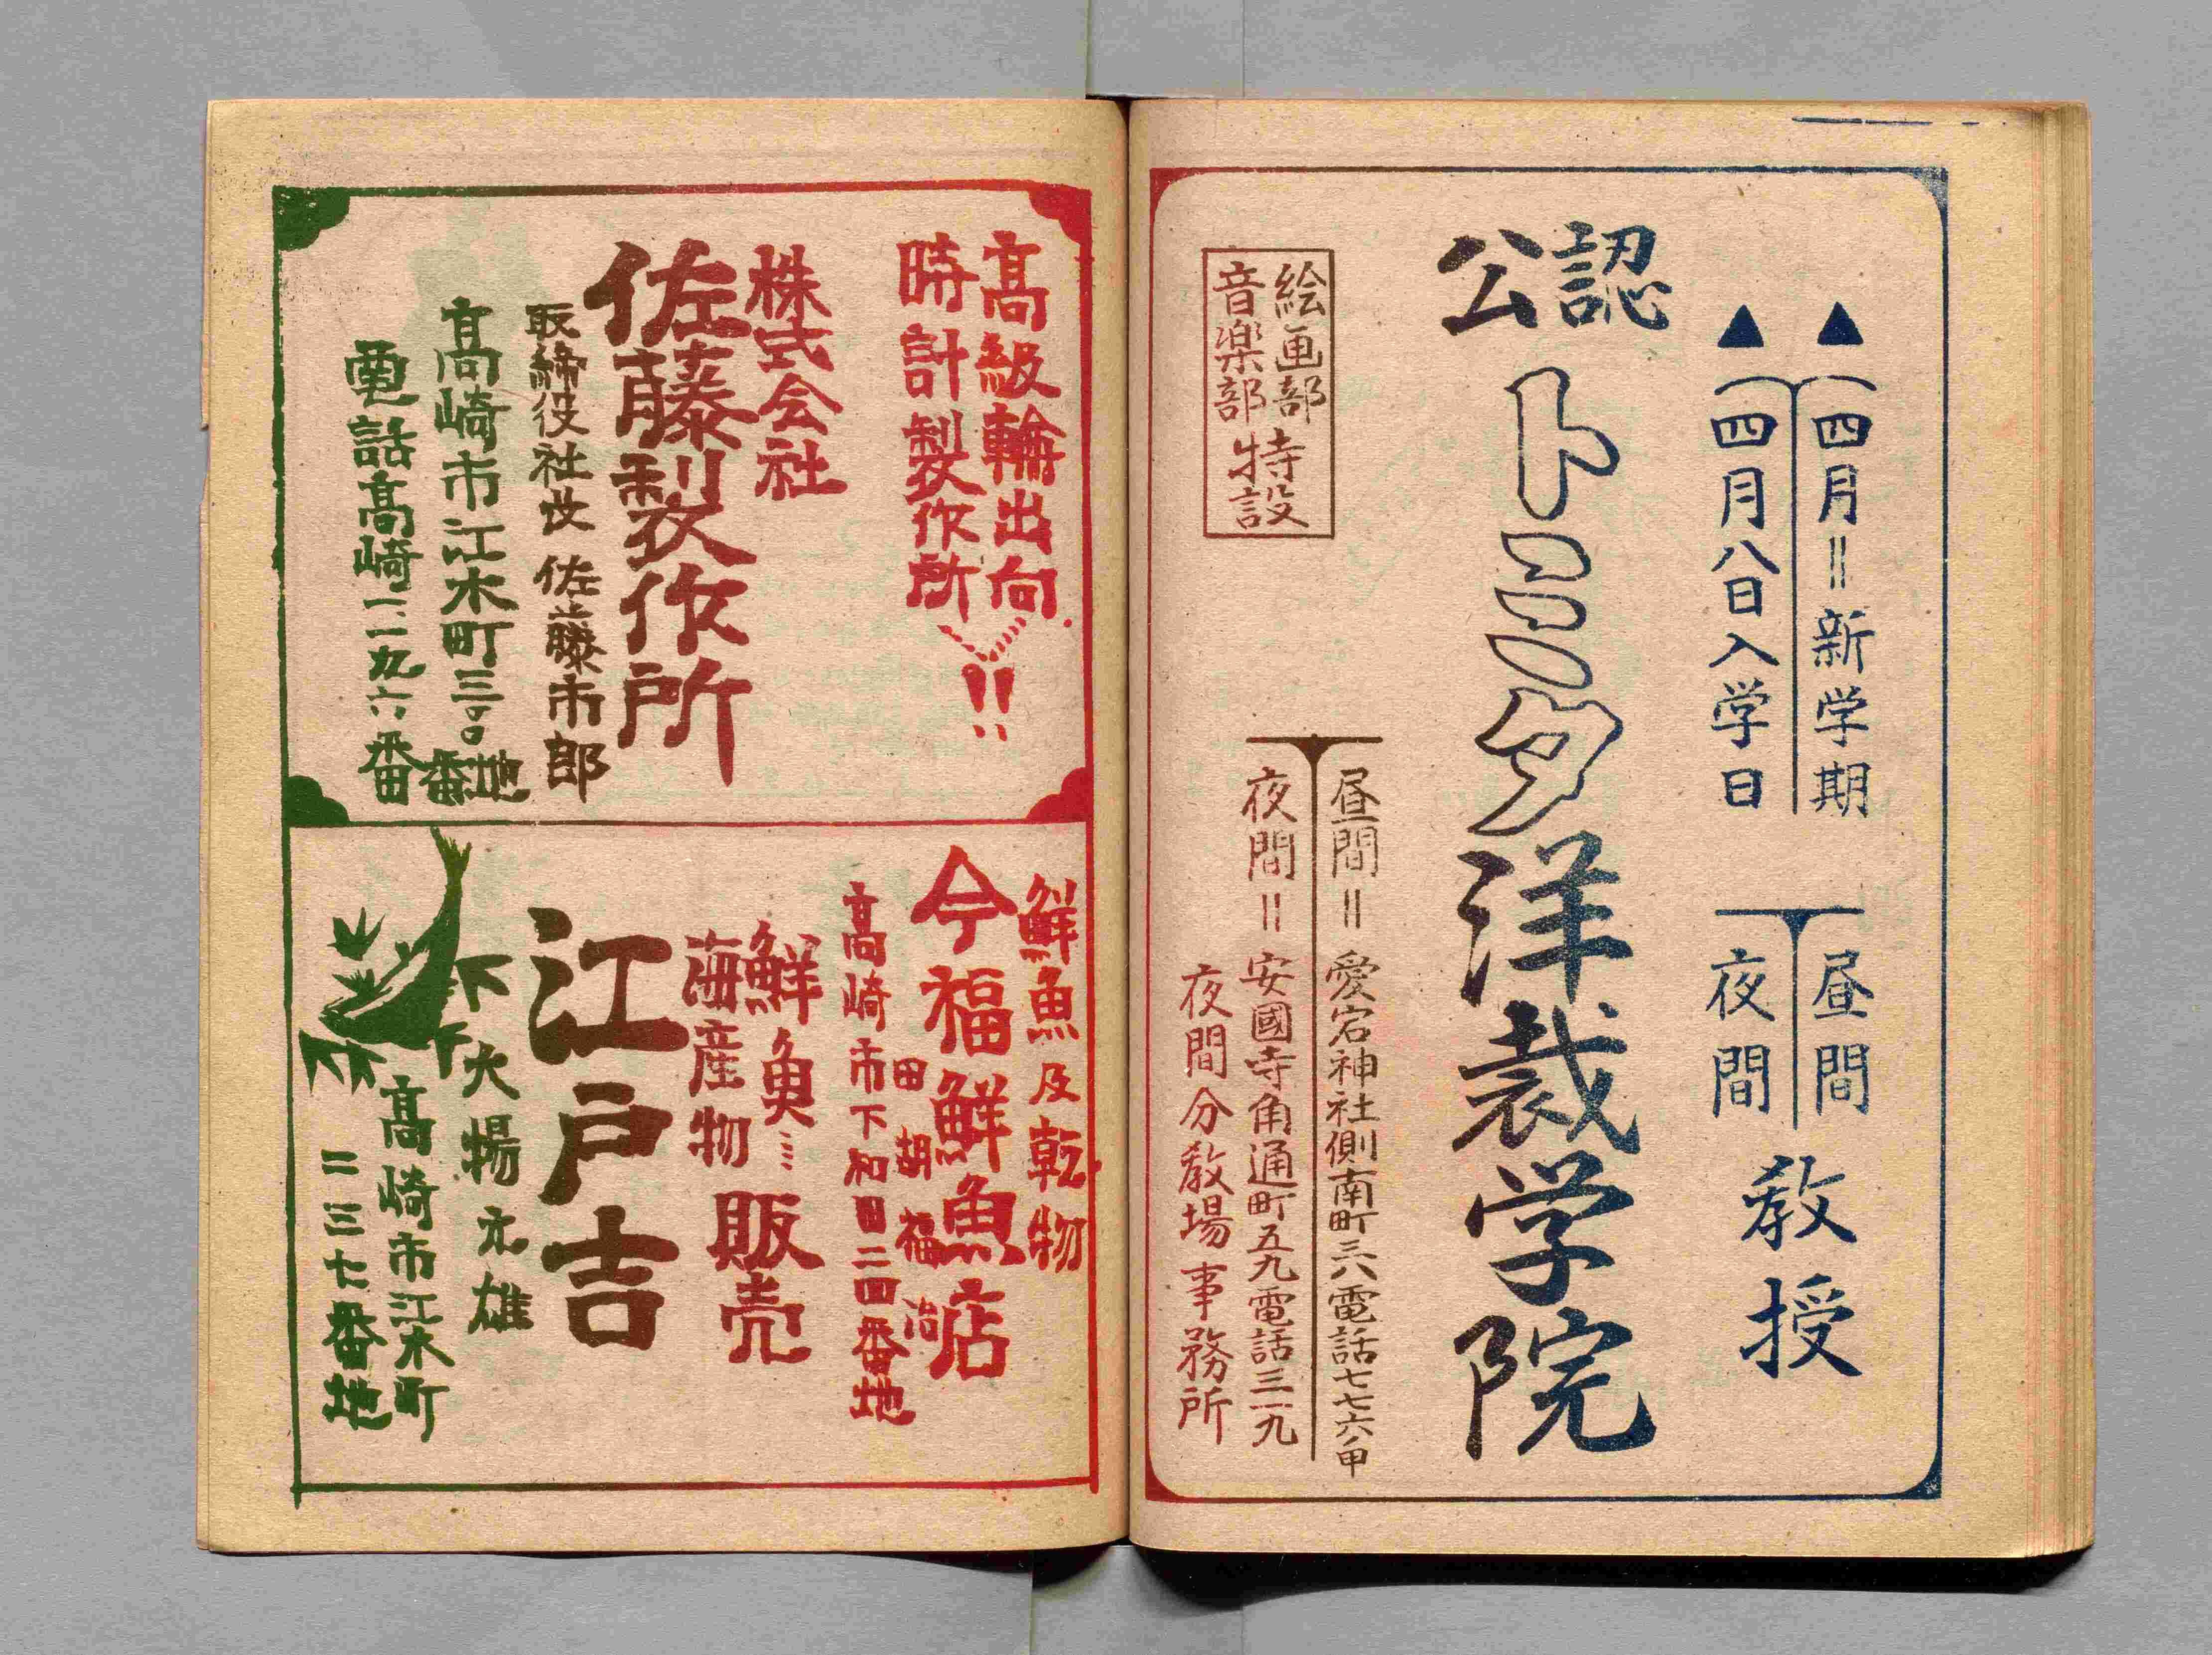 ▲(四月=新学期
▲(四月八日入学日
昼間
夜間
教授
公認
トミタ洋裁学院
絵画部
音楽部
特設
昼間=愛宕神社側南町三六電話七七六甲
夜間=安國寺角通町五九電話三一九
夜間分教場事務所
高級輸出向
時計製作所……!!
株式会社
佐藤製作所
取締役社長 佐藤市郎
高崎市江木町三〇〇番地
電話高崎一、一九六番
鮮魚及乾物
今福鮮魚店
田胡福治
高崎市下和田二四番地
鮮魚…
海産物
販売
江戸吉
下火揚元雄
高崎市江木町
二三七番地